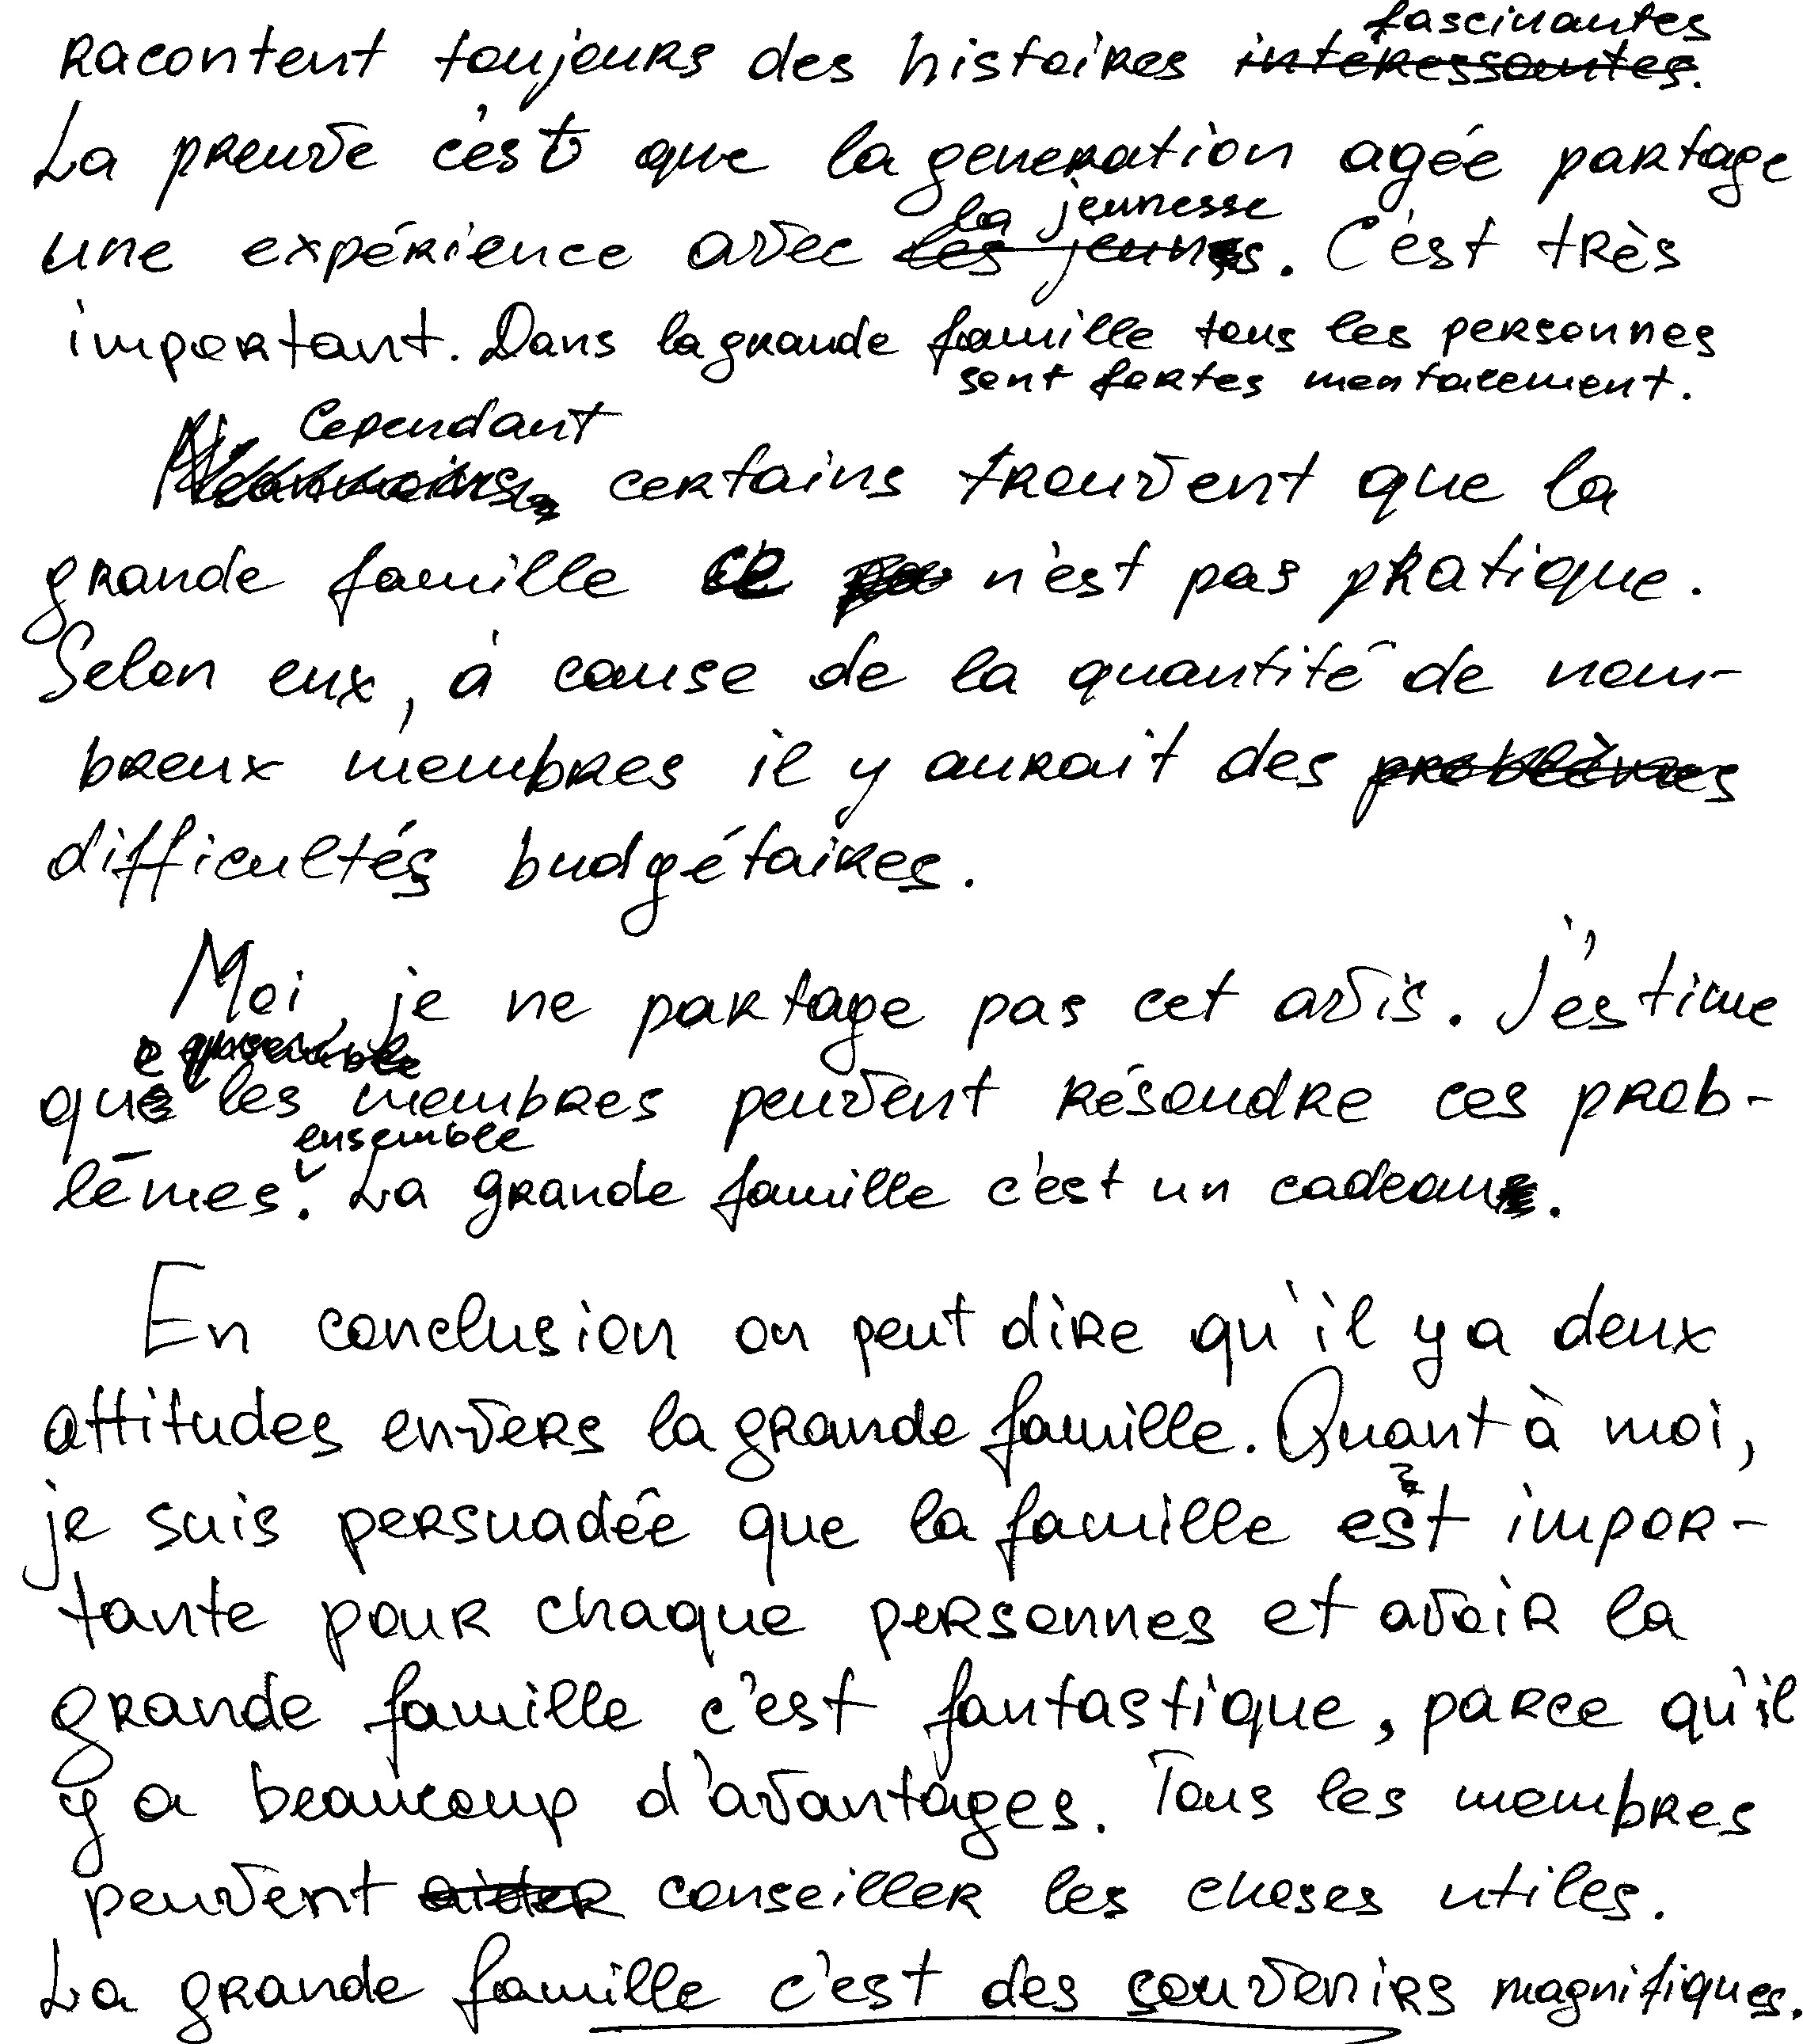 fascinantes
racontent toujours des histoires intéressantes.
La preuve c'est que la generation agée partage
la jeunesse
une expérience avec les jeunes. C'est très
important. Dans la grande famille tous les personnes
sont fortes mentalement.
Cependant
certains trouvent que la
grande famille ce n'est pas pratique.
Selon eux, à cause de la quantité de nom-
breux membres il y aurait des problèmes
difficultés budgétaires.
Moi, je ne partage pas cet avis. J'estime
que les membres peuvent résoudre ces prob-
ensemble
lèmes. La grande famille c'est un cadeau.
En conclusion on peut dire qu'il y a deux
attitudes envers la grande famille. Quant à moi,
je suis persuadée que la famille est impor-
tante pour chaque personnes et avoir la
grande famille c'est fantastique, parce qu'il
y a beaucoup d'avantages. Tous les membres
peuvent aider conseiller les choses utiles.
La grande famille c'est des souvenirs magnifiques.